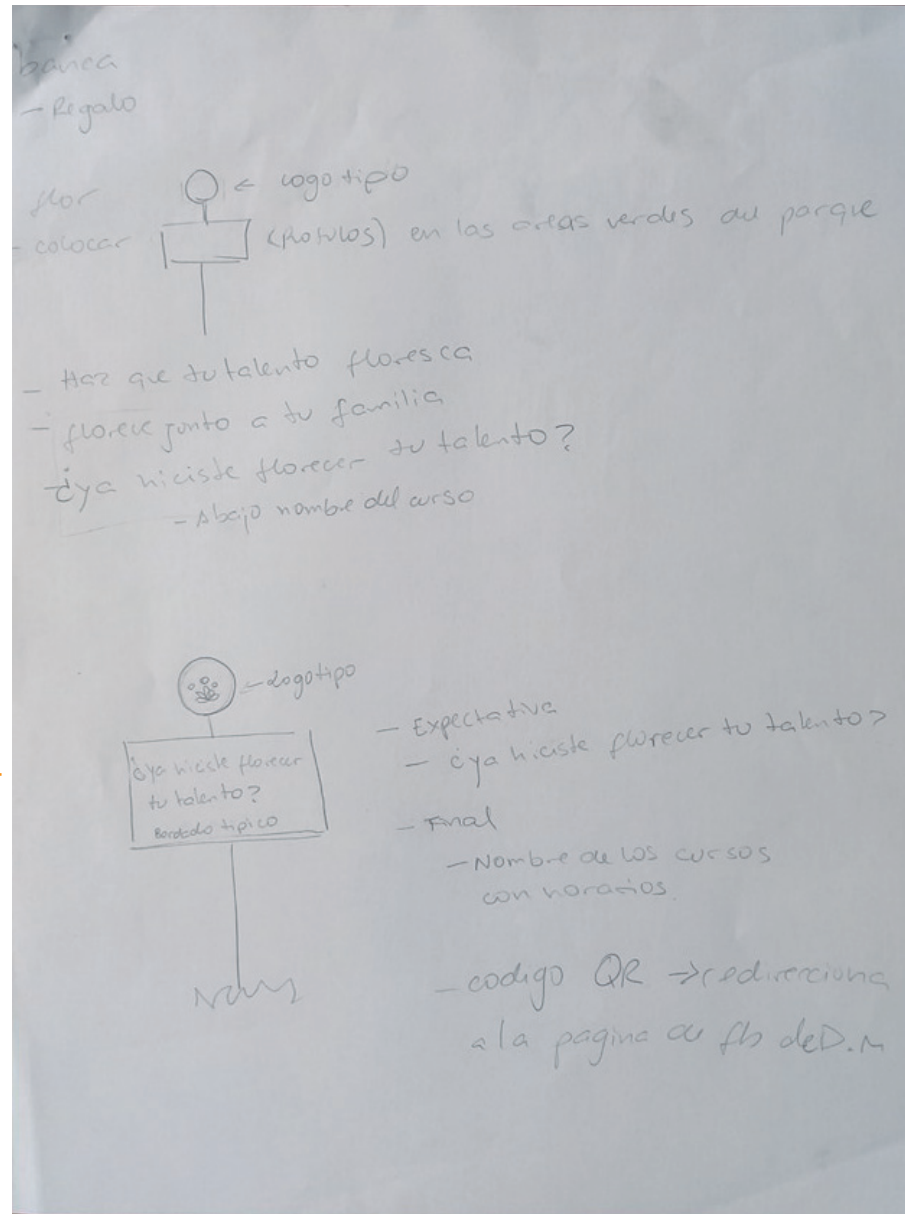 banca
- Regalo
flor
← logotipo
- colocar (Rotulos) en las areas verdes del parque
- Haz que tu talento floresca
- florece junto a tu familia
- ¿ya hiciste florecer tu talento?
- Abajo nombre del curso
- Logotipo
¿ya hiciste florecer
tu talento?
Bordado tipico
- Expectativa
- ¿ya hiciste florecer tu talento?
- Final
- Nombre de los cursos
con horarios.
- codigo QR → redirecciona
a la pagina de fb de D.M